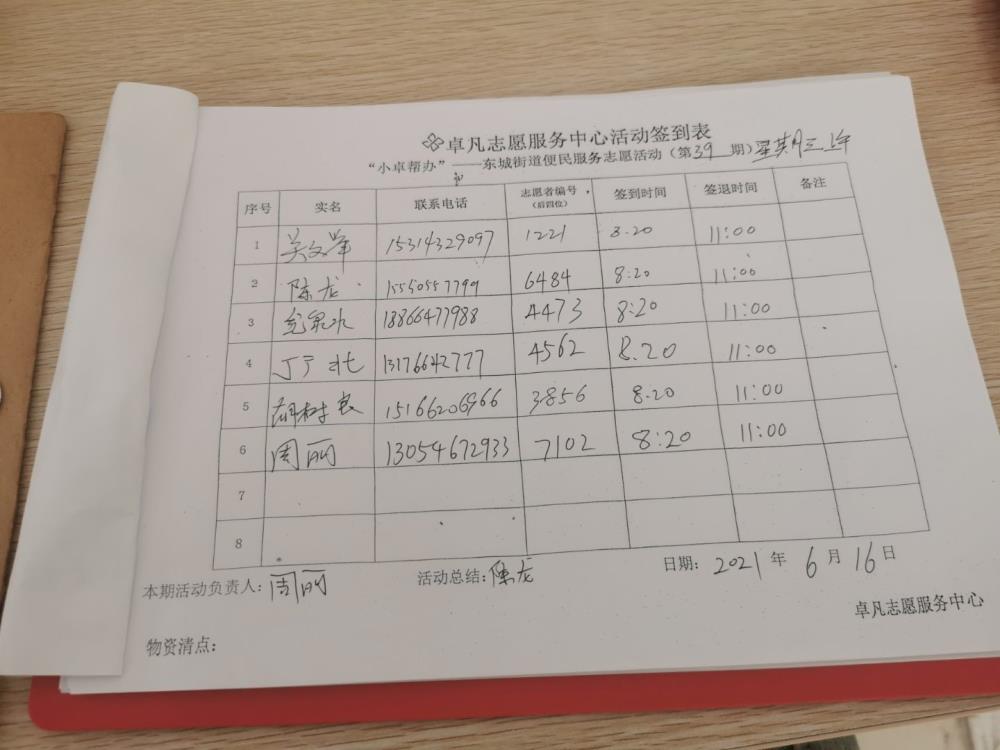 卓凡志愿服务中心活动签到表
“小卓帮办”——东城街道便民服务志愿活动（第39期）星期三上午
序号 实名 联系电话 志愿者编号（后四位） 签到时间 签退时间 备注
1 15314329097 1221 8.20 11:00
2 陈龙 15550557799 6484 8:20 11:00
3 18866477988 4473 8:20 11:00
4 丁广北 13176642777 4562 8.20 11:00
5 胡树良 15166206966 3856 8.20 11:00
6 周丽 13054672933 7102 8:20 11:00
7
8
本期活动负责人：周丽 活动总结：陈龙 日期：2021年6月16日
卓凡志愿服务中心
物资清点：